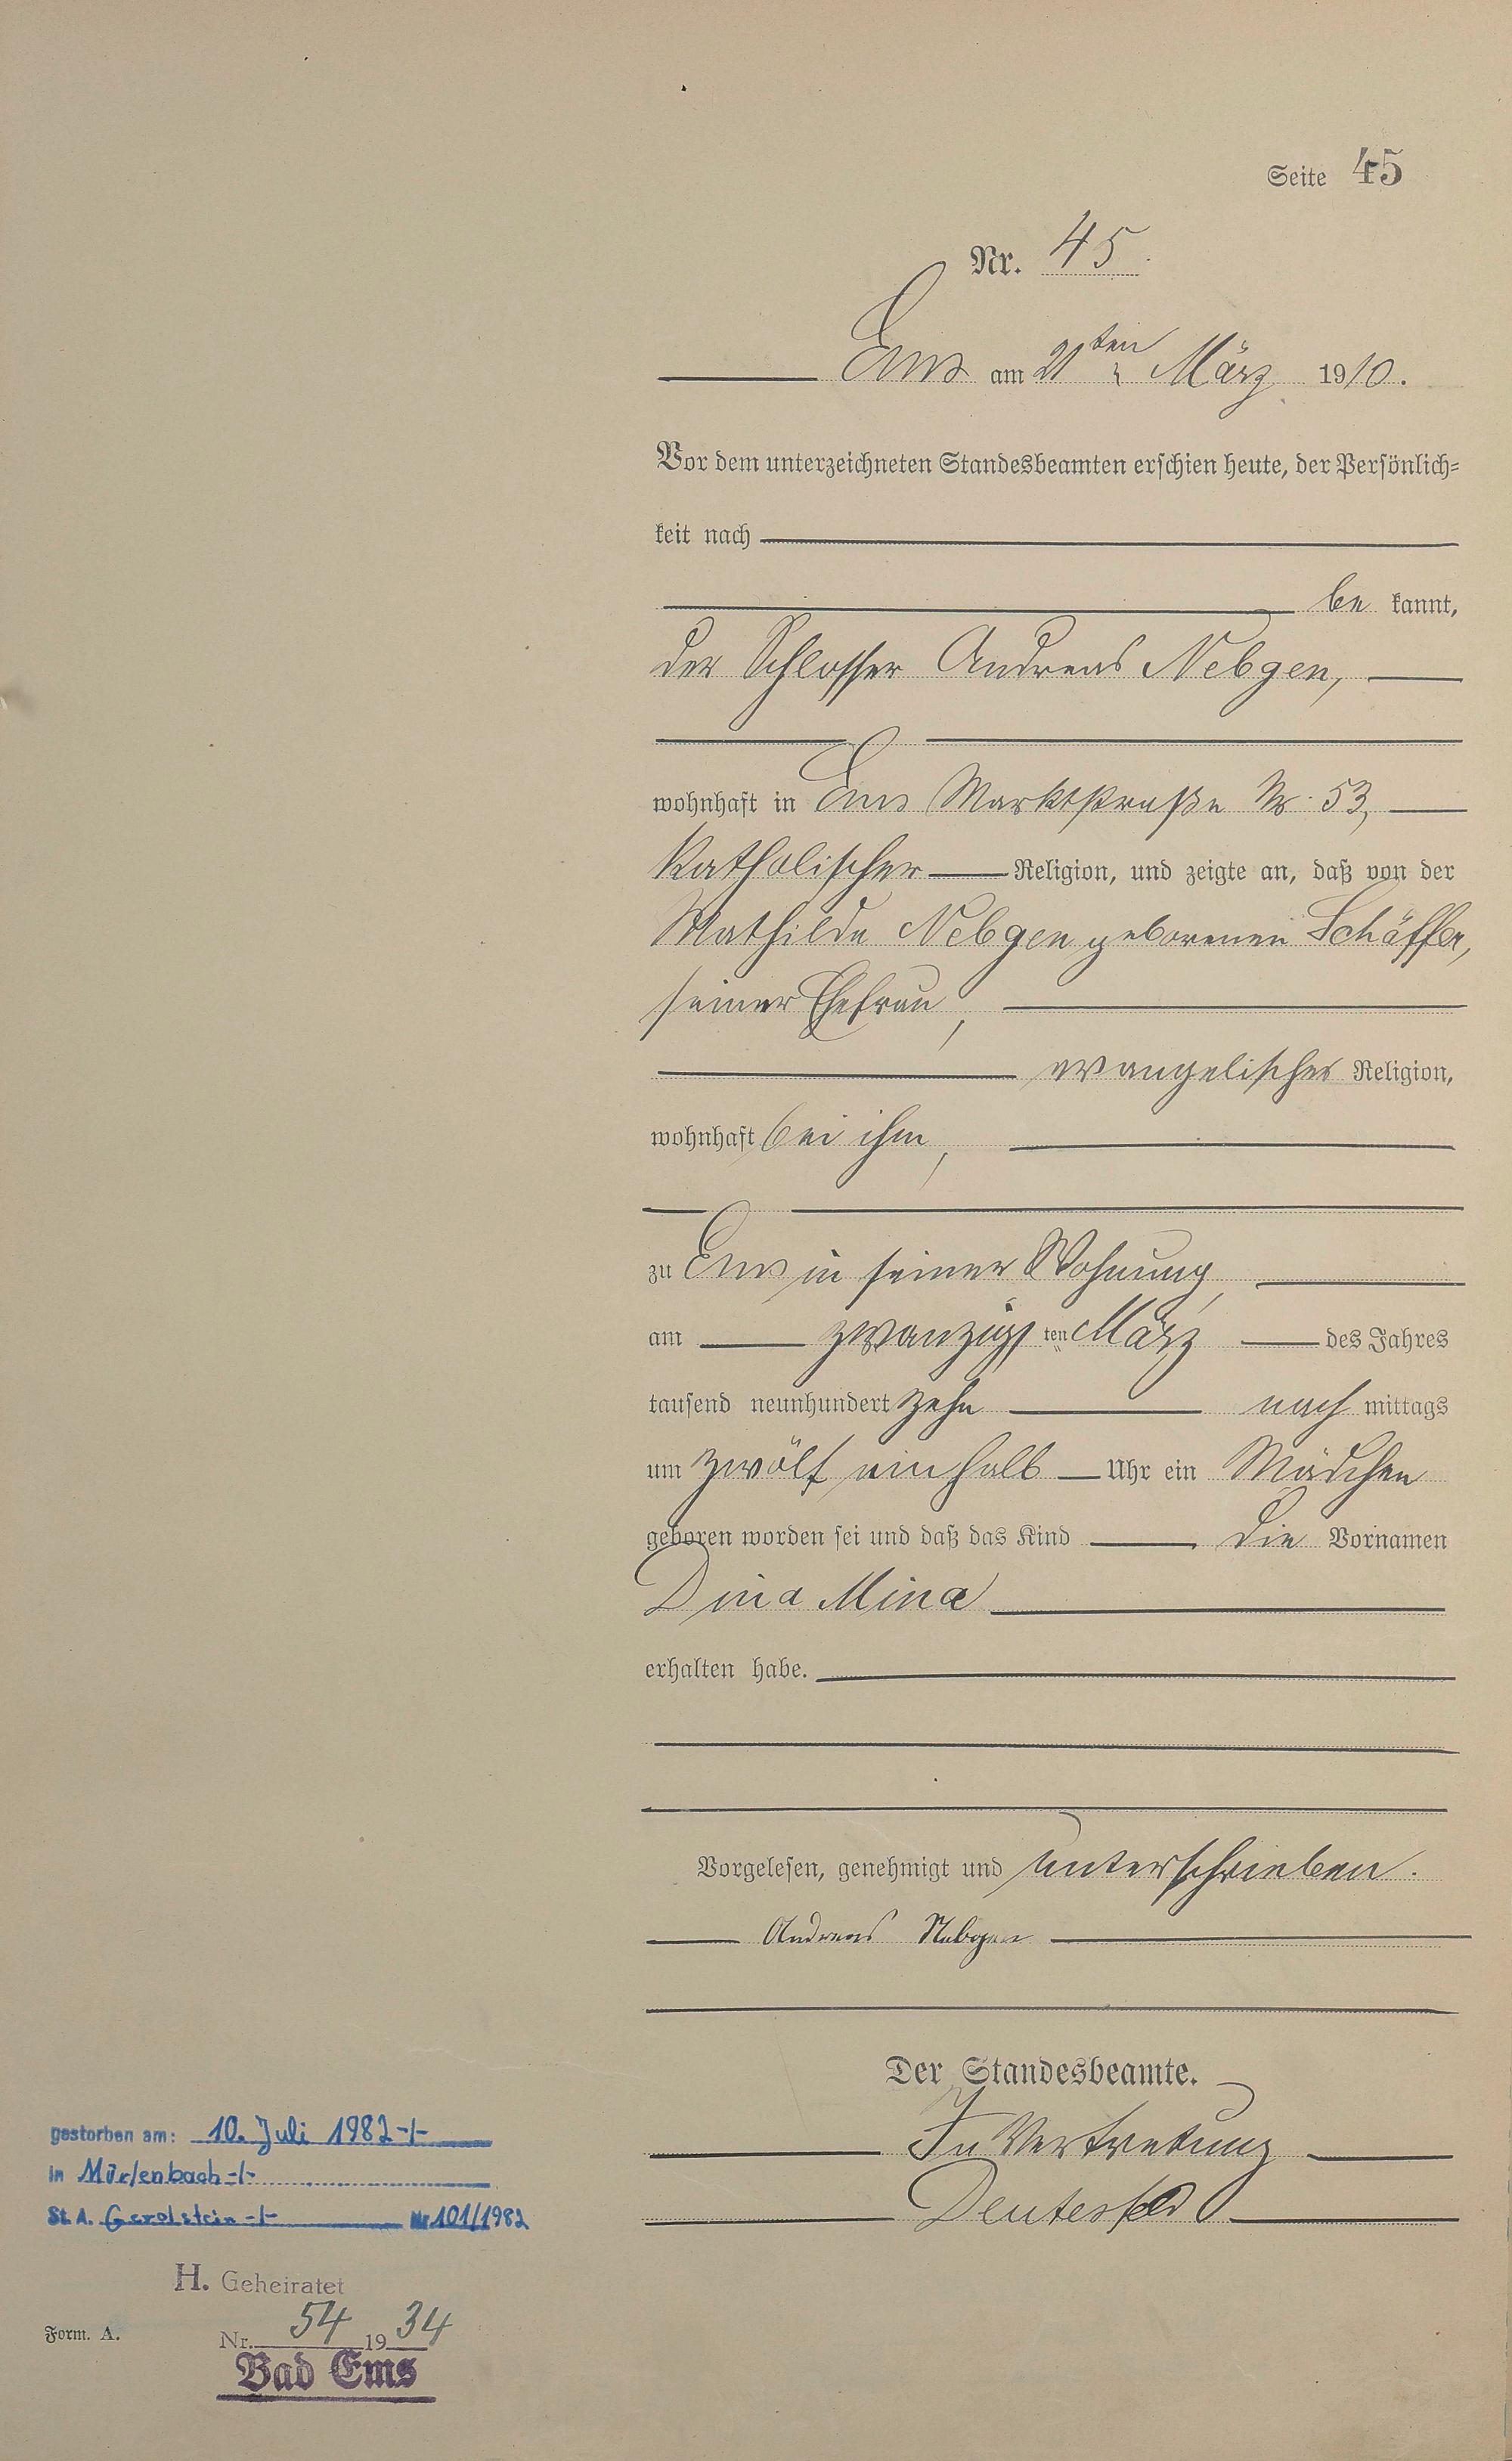 Seite 45
Nr. 45.
Ems am 21ten März 1910.
Vor dem unterzeichneten Standesbeamten erschien heute, der Persönlich-
keit nach
be kannt,
der Schlosser Andreas Nebgen,
wohnhaft in Ems Marktstraße Nr. 53,
katholischer Religion, und zeigte an, daß von der
Mathilde Nebgen geborenen Schäffer,
seiner Ehefrau,
evangelischer Religion,
wohnhaft bei ihm,
zu Ems in seiner Wohnung,
am zwanzigsten März des Jahres
tausend neunhundert zehn nach mittags
um zwölf einhalb Uhr ein Mädchen
geboren worden sei und daß das Kind die Vornamen
Dina Mina
erhalten habe.
Vorgelesen, genehmigt und unterschrieben.
Andreas Nebgen
Der Standesbeamte.
In Vertretung
gestorben am: 10. Juli 1982 -/-
in Mürlenbach -/-
St. A. Gerolstein -/- Nr 101/1982
H. Geheiratet
Nr. 54 1934
Bad Ems
Form. A.